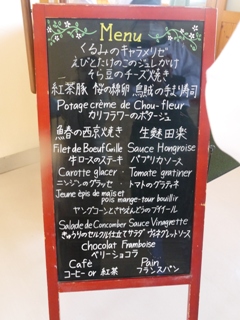 Menu
くるみのキャラメリゼ
えびとたけのこのジュレかけ
そら豆のチーズ焼き
紅茶豚 桜の綿卵 烏賊の手まり寿司
Potage crème de Chou-fleur
カリフラワーのポタージュ
魚春の西京焼き 生麩田楽
Filet de Boeuf Grille Sauce Hangroise
牛ロースのステーキ パプリカソース
Carotte glacer Tomate gratiner
ニンジンのグラッセ トマトのグラチネ
Jeune épis de maïs et
pois mange-tour bouillir
ヤングコーンとさやえんどうのブイール
Salade de Concomber Sauce Vinagrette
きゅうりのセルクル仕立てサラダ ヴィネグレットソース
Chocolat Framboise
ベリーショコラ
Café Pain
コーヒー or 紅茶 フランスパン